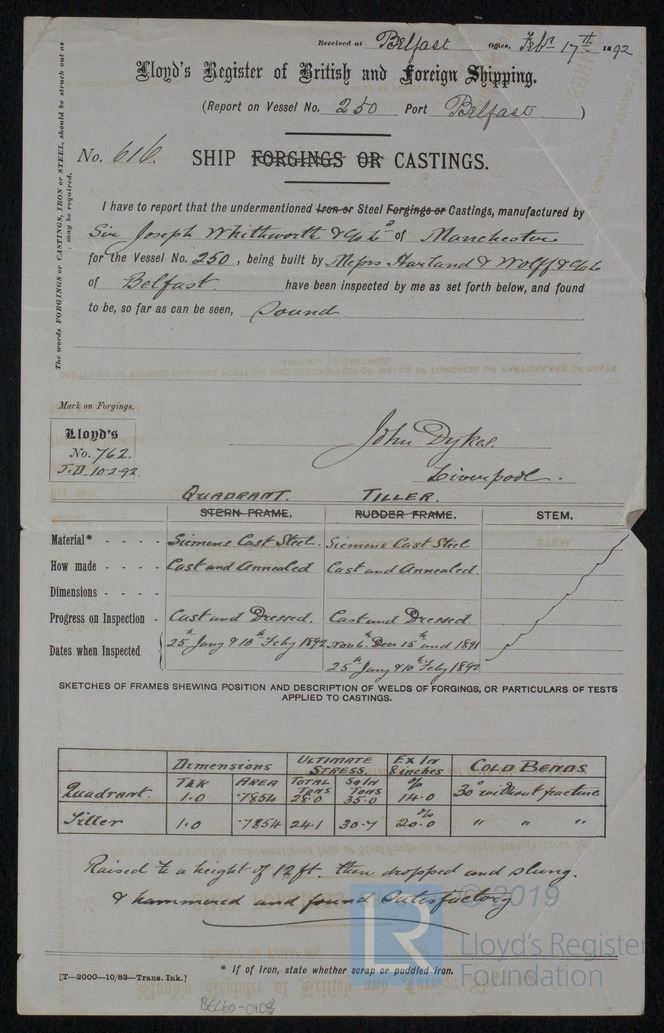 Received at Belfast Office, Febr 17th 1892
Lloyd's Register of British and Foreign Shipping.
(Report on Vessel No. 250 Port Belfast )
No. 616. SHIP FORGINGS OR CASTINGS.
The words FORGINGS or CASTINGS, IRON or STEEL, should be struck out as may be required.
I have to report that the undermentioned Iron or Steel Forgings or Castings, manufactured by
Sir Joseph Whithworth & Co Ld of Manchester
for the Vessel No. 250, being built by Messrs Harland & Wolff & Co Ld
of Belfast. have been inspected by me as set forth below, and found
to be, so far as can be seen, Sound
Mark on Forgings.
Lloyd's
No. 762.
J.D. 10.2.92.
John Dykes.
Liverpool.
QUADRANT. TILLER.
STERN FRAME. RUDDER FRAME. STEM.
Material* - - - - Siemens Cast Steel. Siemens Cast Steel
How made - - - - Cast and Annealed Cast and Annealed.
Dimensions - - - -
Progress on Inspection - Cast and Dressed. Cast and Dressed
Dates when Inspected 25th Jany & 10th Feby 1892 Nov 6th Decr 15th and 1891
25th Jany & 10th Feby 1892
SKETCHES OF FRAMES SHEWING POSITION AND DESCRIPTION OF WELDS OF FORGINGS, OR PARTICULARS OF TESTS
APPLIED TO CASTINGS.
Dimensions ULTIMATE STRESS. EX IN 8 inches COLD BENDS.
TKK AREA TOTAL Tons Sq In Tons %
Quadrant. 1.0 .7854 28.0 35.0 14.0 30° without fracture
Tiller 1.0 .7854 24.1 30.7 20.0 % " " "
Raised to a height of 12 ft. then dropped and slung.
& hammered and found satisfactory
© 2019
LR Lloyd's Register
Foundation
* If of Iron, state whether scrap or puddled Iron.
[T—2000—10/83—Trans. Ink.]
BEL60-0108